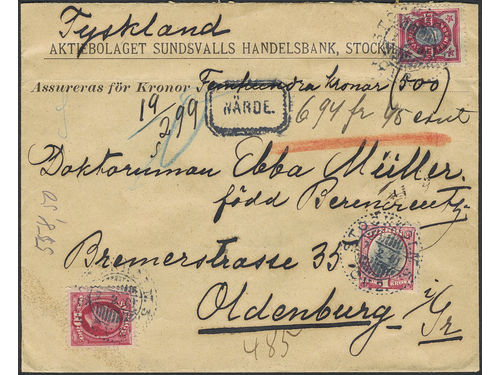 Tyskland
AKTIEBOLAGET SUNDSVALLS HANDELSBANK, STOCK
Assureras för Kronor Femhundra kronor (500)
19/5 299
VÄRDE.
694 fr 45 cent
Doktorinnan Ebba Müller
född Berencreutz
Bremerstrasse 35
Oldenburg i/Gr
485